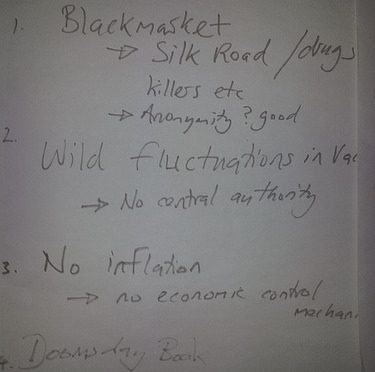 1. Blackmarket
→ Silk Road / drugs
killers etc
→ Anonymity ? good
2.
Wild fluctuations in Va
→ No central authority
3. No inflation
→ no economic control
mechani
4. Doomsday Book